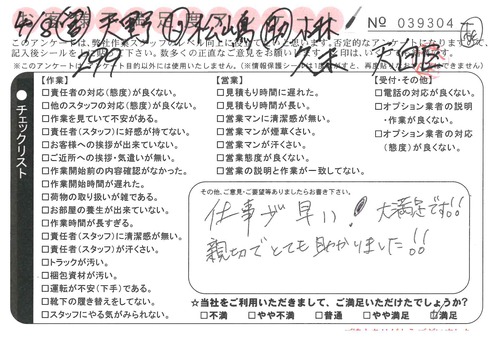 № 039304
4/8 営 天野 松嶋 助 林
299 久木
このアンケートは、弊社作業スタッフのレベル向上に
※このアンケート目的以外には使用いたしません。
チェックリスト
【作業】
□責任者の対応(態度)が良くない。
□他のスタッフの対応(態度)が良くない。
□作業を見ていて不安がある。
□責任者(スタッフ)に好感が持てない。
□お客様への挨拶が出来ていない。
□ご近所への挨拶・気遣いが無い。
□作業開始前の内容確認がなかった。
□作業開始時間が遅れた。
□荷物の取り扱いが雑である。
□お部屋の養生が出来ていない。
□作業時間が長すぎる。
□責任者(スタッフ)に清潔感が無い。
□責任者(スタッフ)が汗くさい。
□トラックが汚い。
□梱包資材が汚い。
□運転が不安(下手)である。
□靴下の履き替えをしてない。
□スタッフにやる気がみられない。
【営業】
□見積もり時間に遅れた。
□見積もり時間が長い。
□営業マンに清潔感が無い。
□営業マンが煙草くさい。
□営業マンが汗くさい。
□営業態度が良くない。
□営業の説明と作業が一致してない。
【受付・その他】
□電話の対応が良くない。
□オプション業者の説明
・作業が良くない。
□オプション業者の対応
(態度)が良くない。
その他、ご意見・ご要望等ありましたらお書き下さい。
仕事が早い! 大満足です!!
親切でとても助かりました!!
☆当社をご利用いただきまして、ご満足いただけたでしょうか?
□不満 □やや不満 □普通 □やや満足 □満足